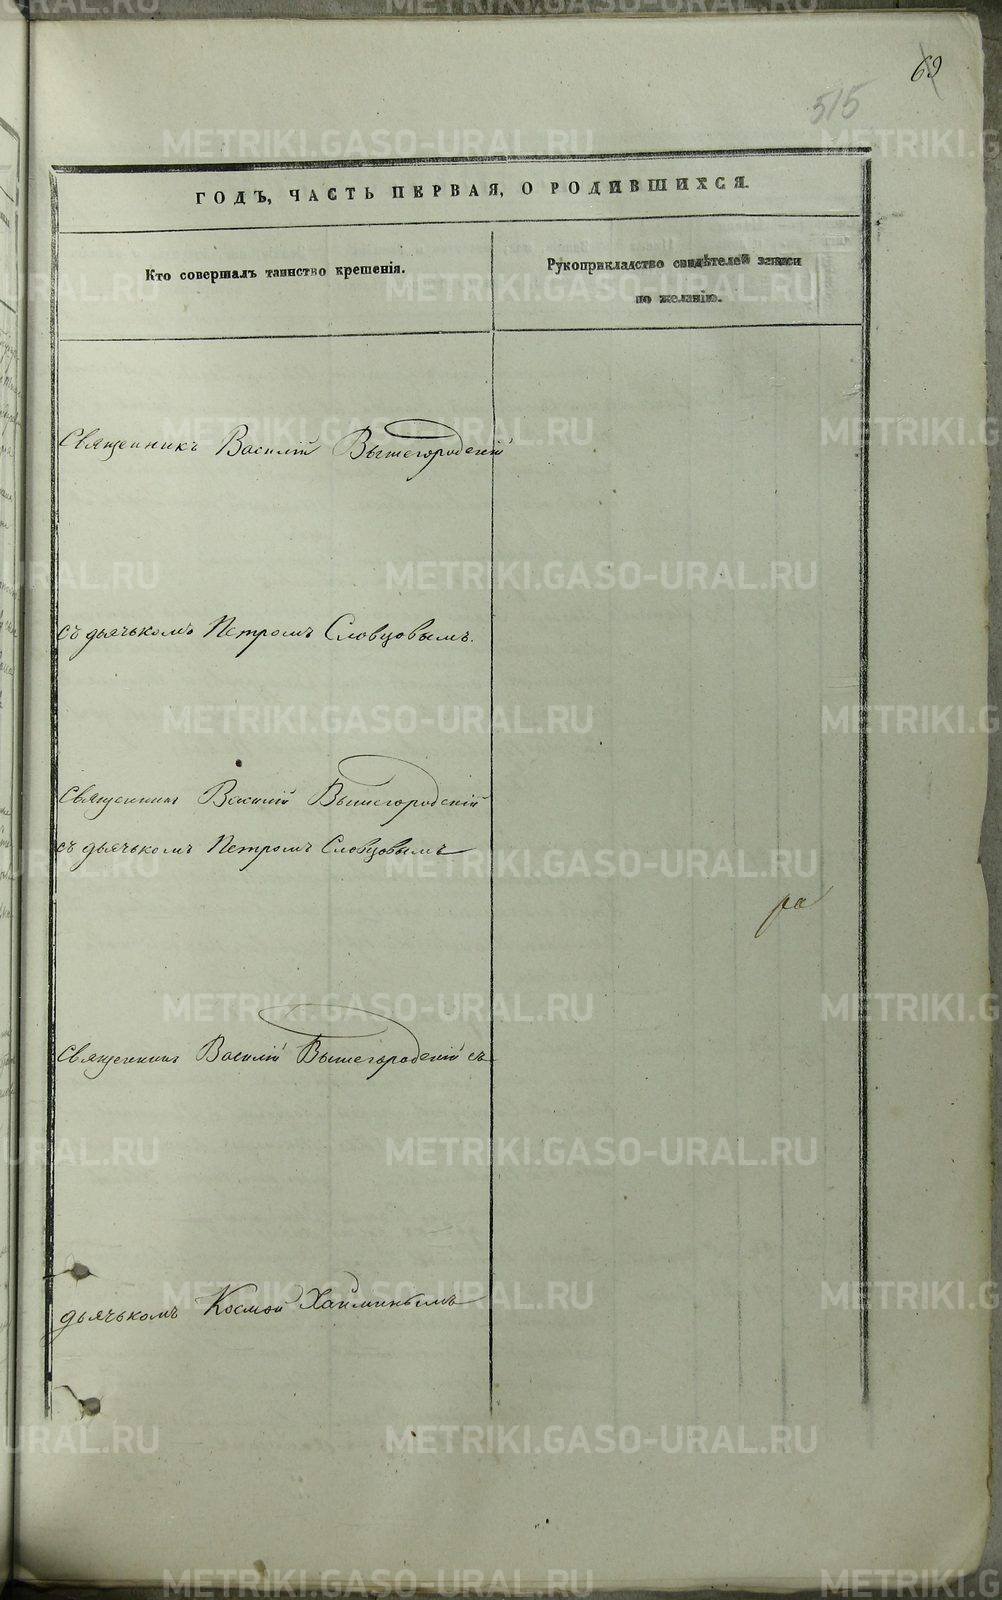 69
515
ГОДЪ, ЧАСТЬ ПЕРВАЯ, О РОДИВШИХСЯ.
Кто совершалъ таинство крещенія.
Рукоприкладство свидѣтелей записи
по желанію.
Священникъ Василій Вышегородскій
съ дьячькомъ Петромъ Словцовымъ.
Священникъ Василій Вышегородскій
съ дьячькомъ Петромъ Словцовымъ
ра
Священникъ Василій Вышегородскій съ
дьячькомъ Космой Хайминымъ
METRIKI.GASO-URAL.RU